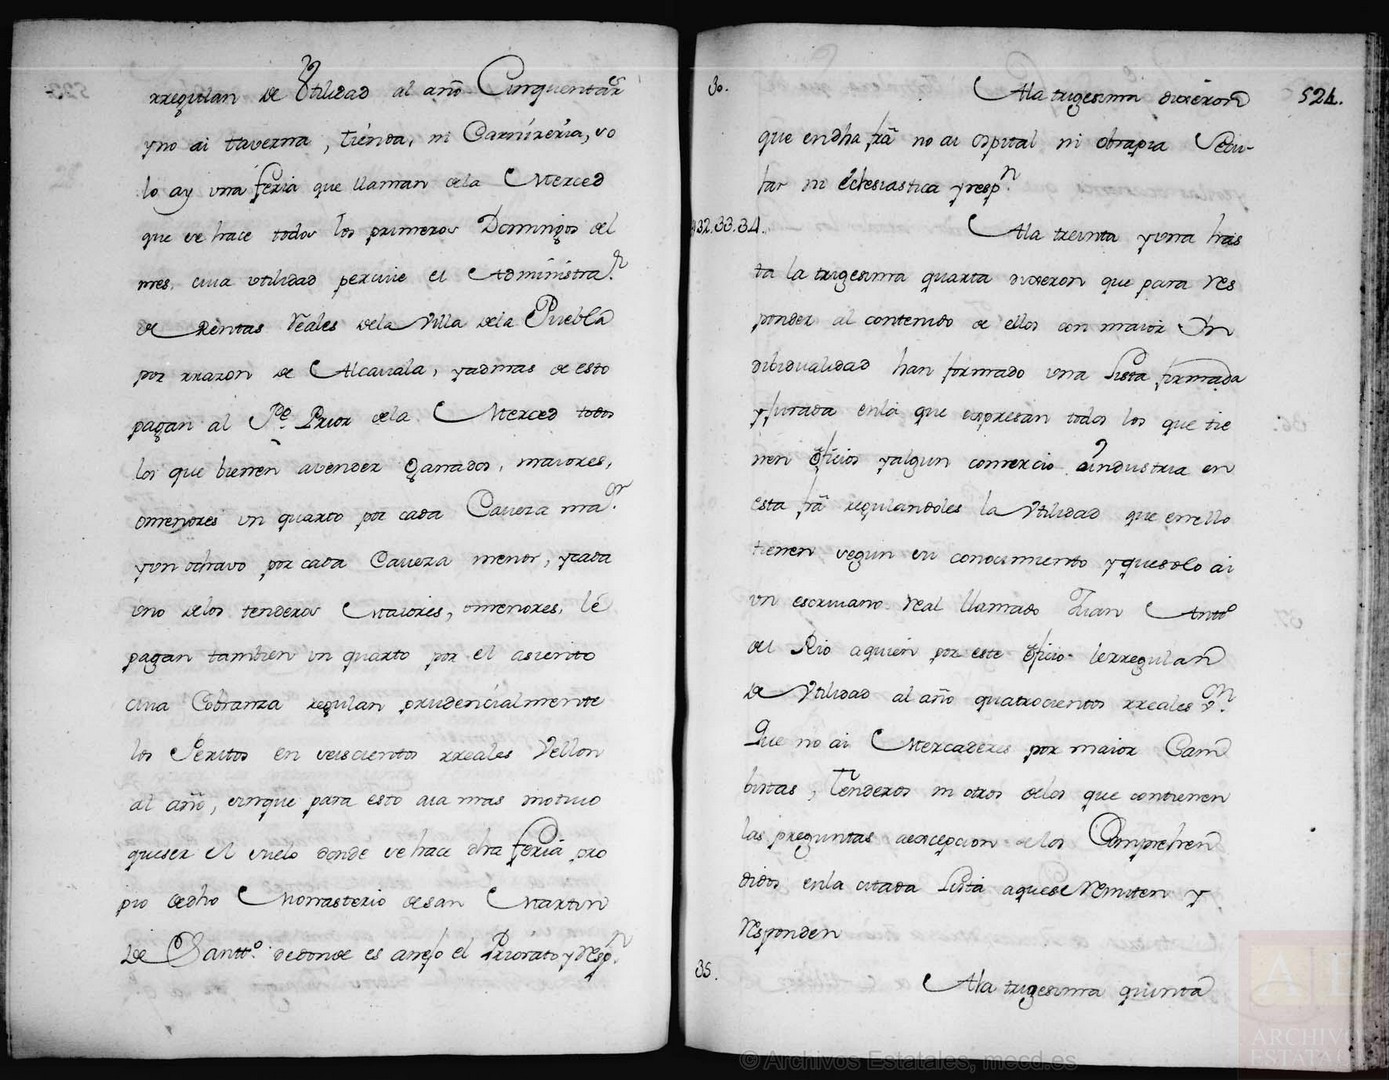 rregulan de Utilidad al año Cinquenta rr.es
yno ai taverna, tienda, ni Carnizeria, so
lo ay una feria que llaman dela Merced
que se hace todos los primeros Domingos del
mes, cuia utilidad percive el Administra.r
de Rentas Reales dela Villa dela Puebla
por rrazon de Alcavala, yadmas de esto
pagan al P.e Prior dela Merced todos
los que bienen avender Ganados, maiores,
omenores un quarto por cada Caveza ma.or
yun ochavo por cada Caveza menor, ycada
uno delos tenderos Maiores, omenores, le
pagan tambien un quarto por el asiento
cuia Cobranza regulan prudencialmente
los Peritos en seiscientos rreales Vellon
al año, sinque para esto aia mas motivo
queser el suelo donde se hace dha feria pro
pio dedho Monasterio desan Martin
de Santt.o dedonde es anejo el Priorato y resp.n
30. Ala trigesima dixeron 524.
que endha frã no ai ospital ni obrapia Secu-
lar ni eclesiastica yresp.n
32.33.34. Ala treinta yuna has
ta la trigesima quarta dixeron que para res
ponder al contenido de ellos con maior Yn
dibidualidad han formado una Lista firmada
yjurada enla que expresan todos los que tie
nen oficios yalgun comercio ò industria en
esta frã regulandoles la Utilidad que enello
tienen segun su conocimiento yquesolo ai
un escrivano real llamado Juan Antt.o
del Rio aquien por este oficio lerregulan
de Utilidad al año quatrocientos rreales v.on
Que no ai Mercaderes por maior Cam
bistas, Tenderos ni otros delos que contienen
las preguntas aexcepcion delos Comprehen
didos enla citada Lista aquese remiten y
responden
35. Ala trigesima quinta
© Archivos Estatales, mecd.es
ARCHIVOS
ESTATA